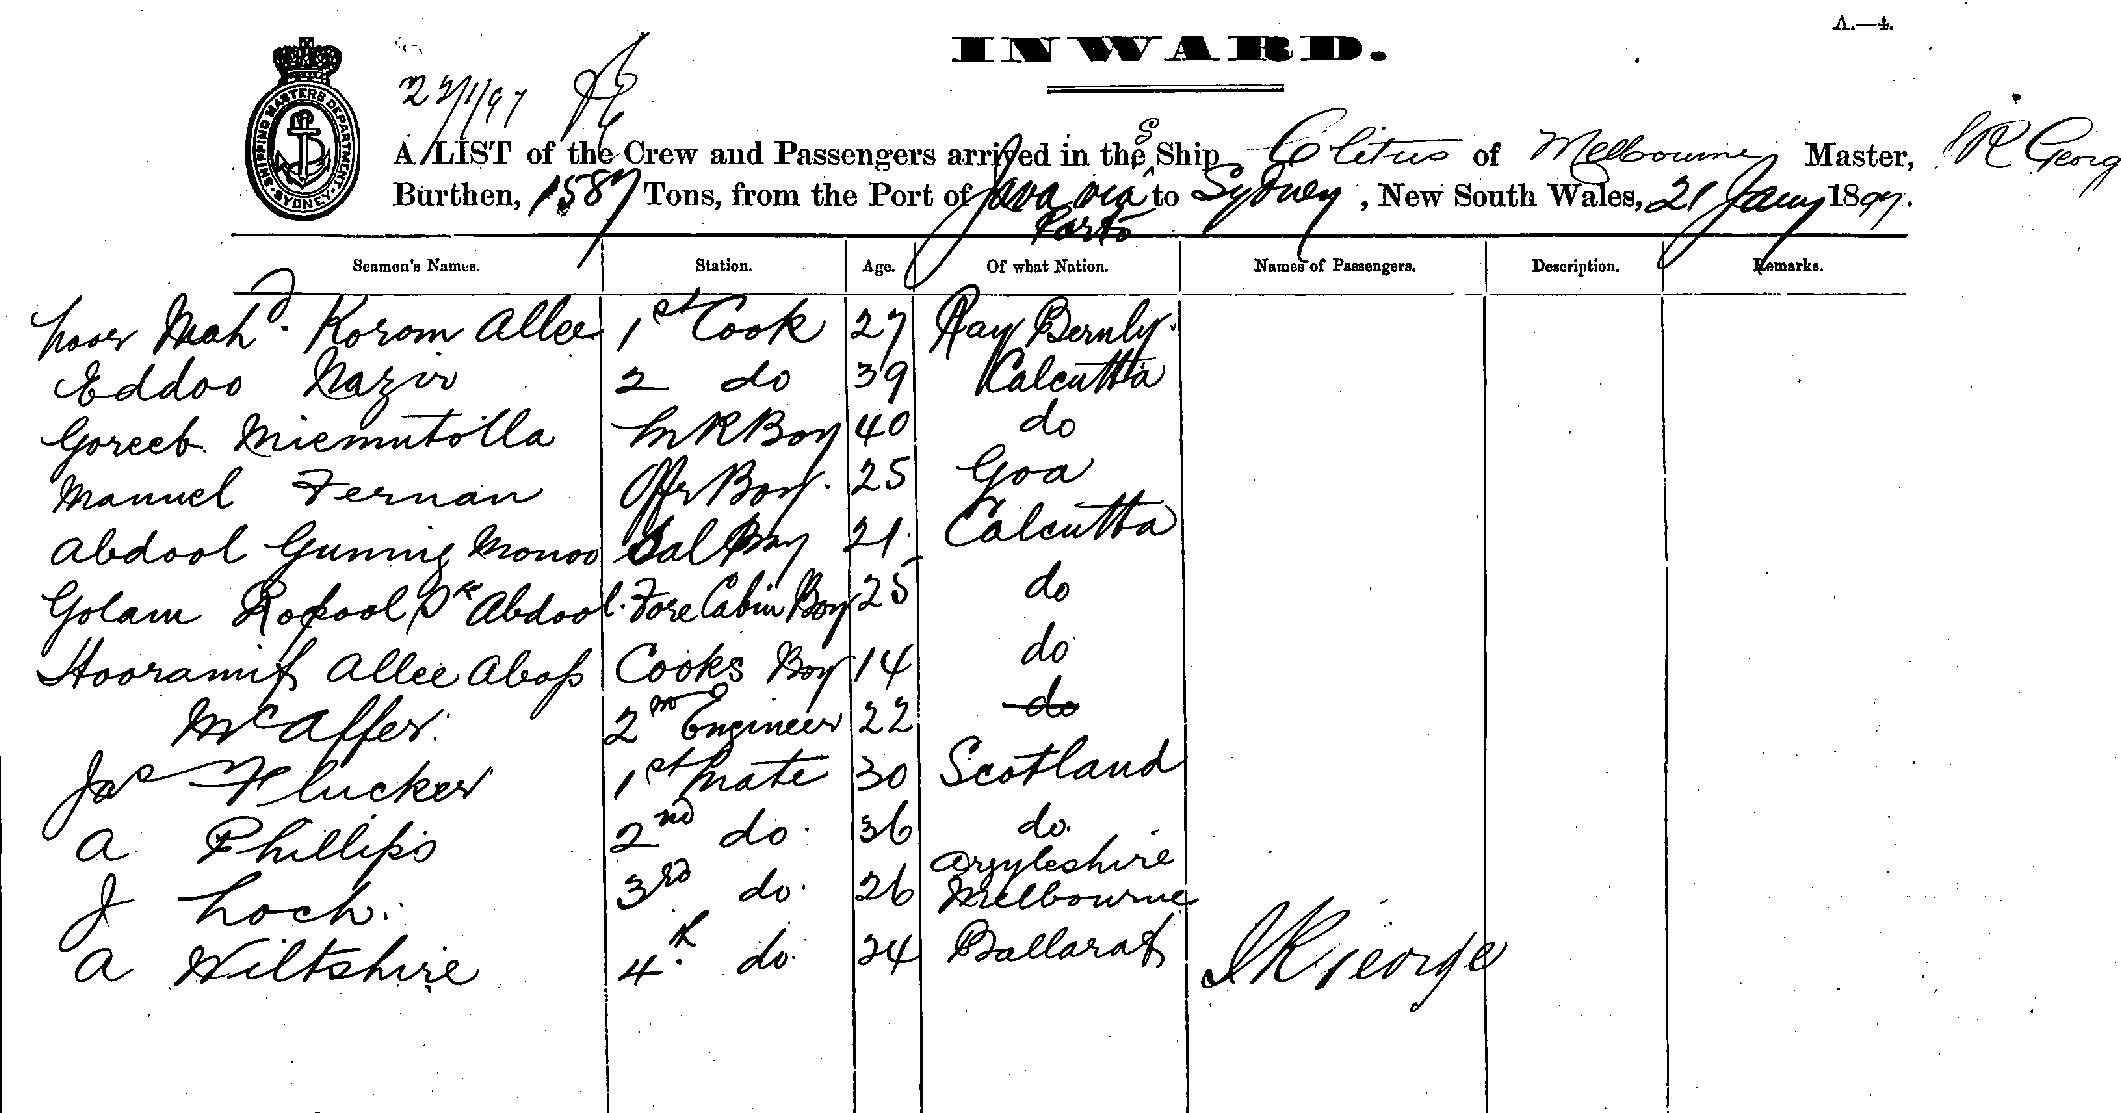 A.—4.
INWARD.
22/1/97
SHIPPING MASTERS DEPARTMENT SYDNEY
A LIST of the Crew and Passengers arrived in the S Ship Clitus of Melbourne Master, R Georg
Burthen, 1587 Tons, from the Port of Java via Ports to Sydney, New South Wales, 21 Jany 1897.
Seamen's Names. Station. Age. Of what Nation. Names of Passengers. Description. Remarks.
Noor Mahd. Korom Allee 1st Cook 27 Ray Bernly.
Eddoo Nazir 2 do 39 Calcutta
Goreeb Miemutolla M R Boy 40 do
Manuel Fernan Offr Boy. 25 Goa
Abdool Gunnig Monoo Sal Boy 21 Calcutta
Golam Abdool. Fore Cabin Boy 25 do
Allee Cooks Boy 14 do
McAffer. 2nd Engineer 22 do
Jas Flucker 1st Mate 30 Scotland
A Phillips 2nd do. 36 do.
J Loch. 3rd do. 26 Argyleshire Melbourne
A Wiltshire 4th do. 24 Ballarat
J R George